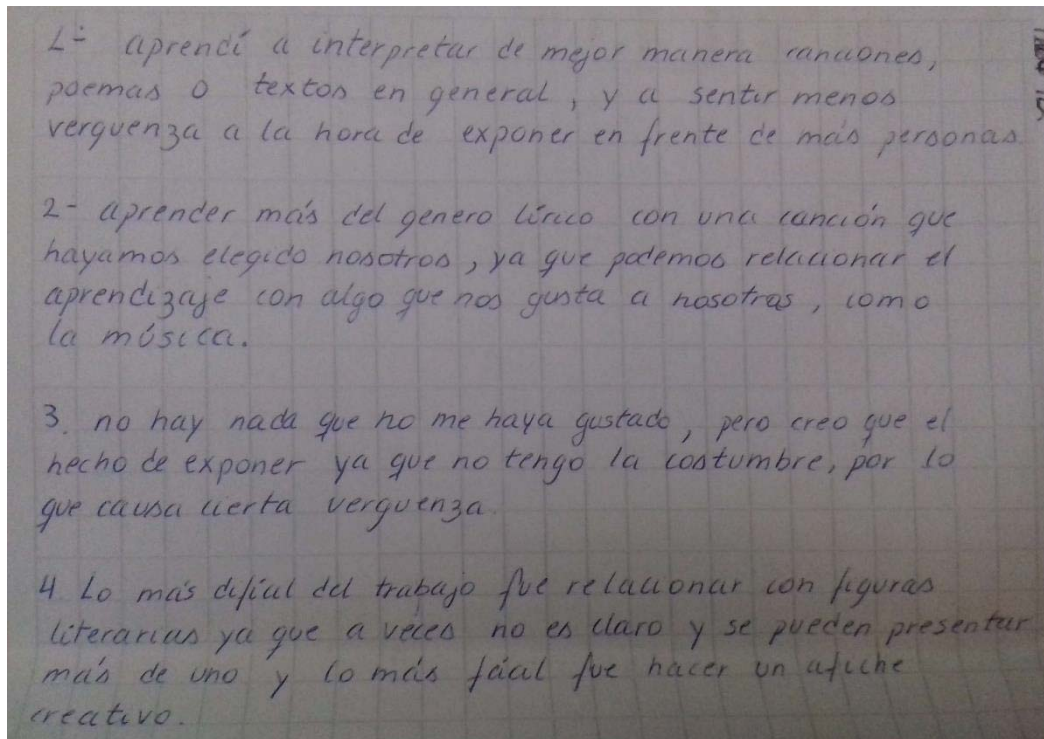 1- aprendí a interpretar de mejor manera canciones,
poemas o textos en general, y a sentir menos
verguenza a la hora de exponer en frente de más personas.
2- aprender más del genero lírico con una canción que
hayamos elegido nosotros, ya que podemos relacionar el
aprendizaje con algo que nos gusta a nosotros, como
la música.
3. no hay nada que no me haya gustado, pero creo que el
hecho de exponer ya que no tengo la costumbre, por lo
que causa cierta verguenza.
4. Lo más difícil del trabajo fue relacionar con figuras
literarias ya que a veces no es claro y se pueden presentar
más de uno y lo más fácil fue hacer un afiche
creativo.